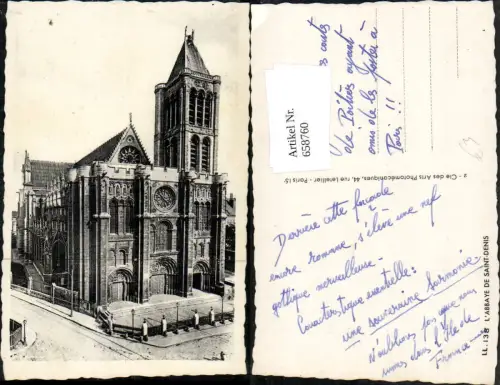 Artikel Nr.
658760
de Poitiers ayant
omis de les poster à
Paris !!
Derrière cette façade
encore romane, s'élève une nef
gothique merveilleuse -
Caractéristique essentielle :
une souveraine harmonie
n'oublions pas que nous
sommes dans l'Île de
France -
Cie des Arts Photomécaniques, 44, rue Letellier - Paris-15
LL. 138 L'ABBAYE DE SAINT-DENIS
63